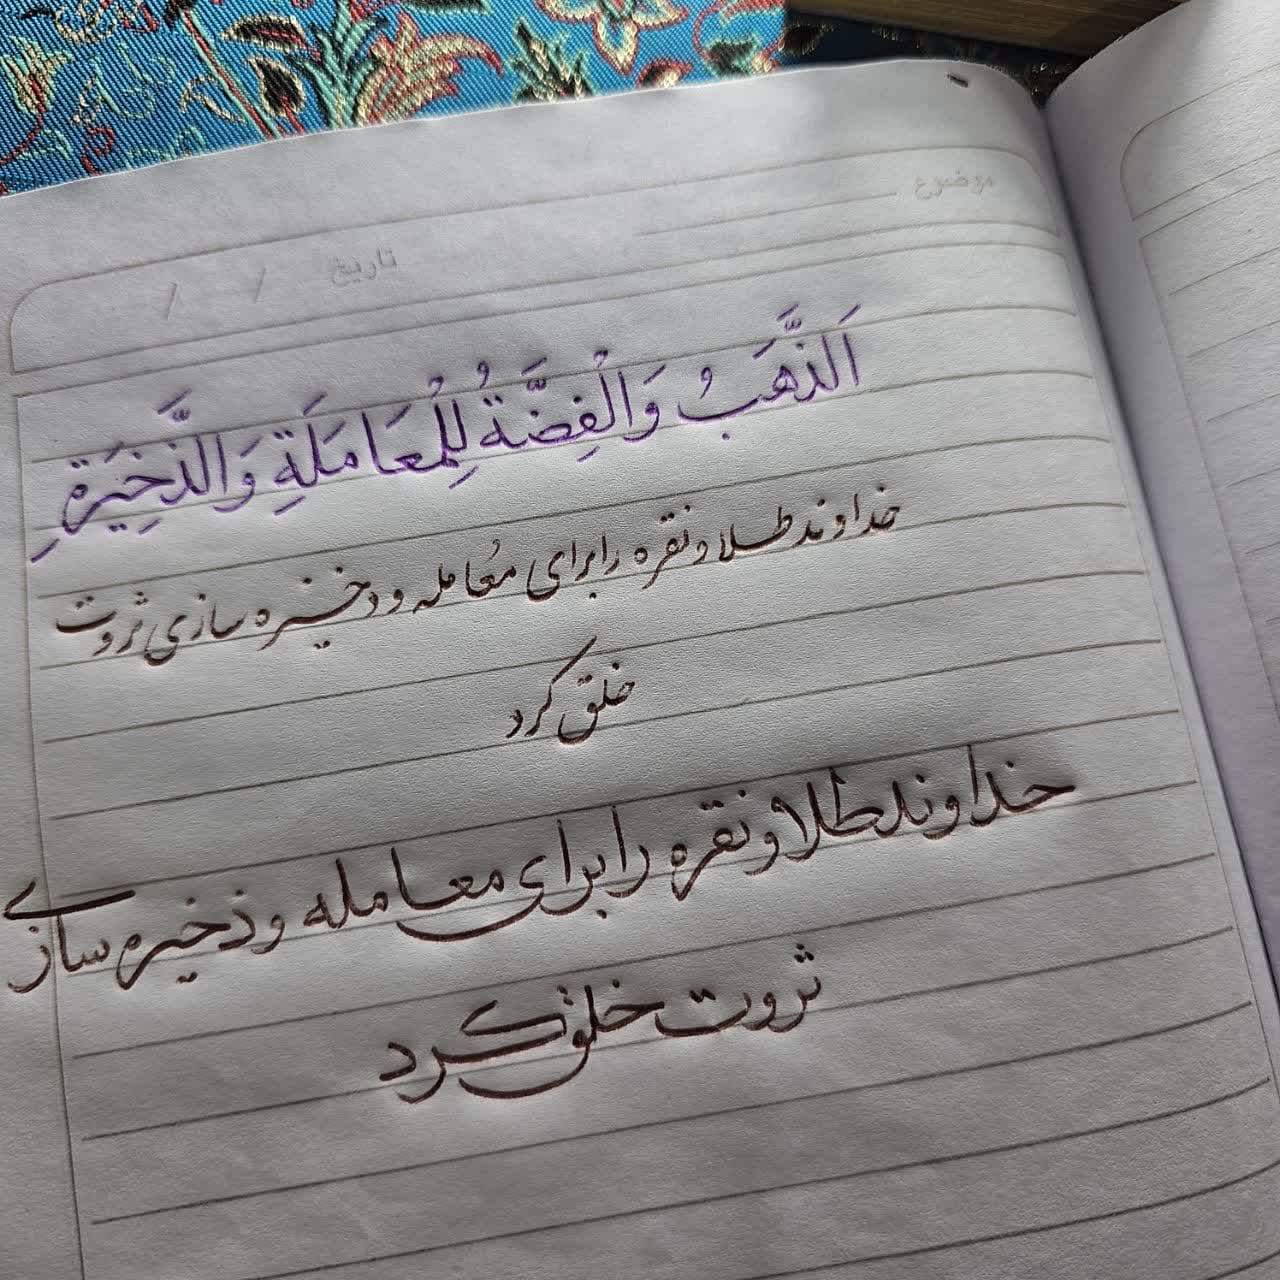 موضوع
تاریخ / /
اَلذَّهَبُ وَالْفِضَّةُ لِلْمُعَامَلَةِ وَالذَّخِیَرةِ
خداوند طلا و نقره را برای مُعامله و ذخیره سازی ثروت
خلق کرد
خداوند طلا و نقره را برای معامله و ذخیره سازی
ثروت خلق کرد